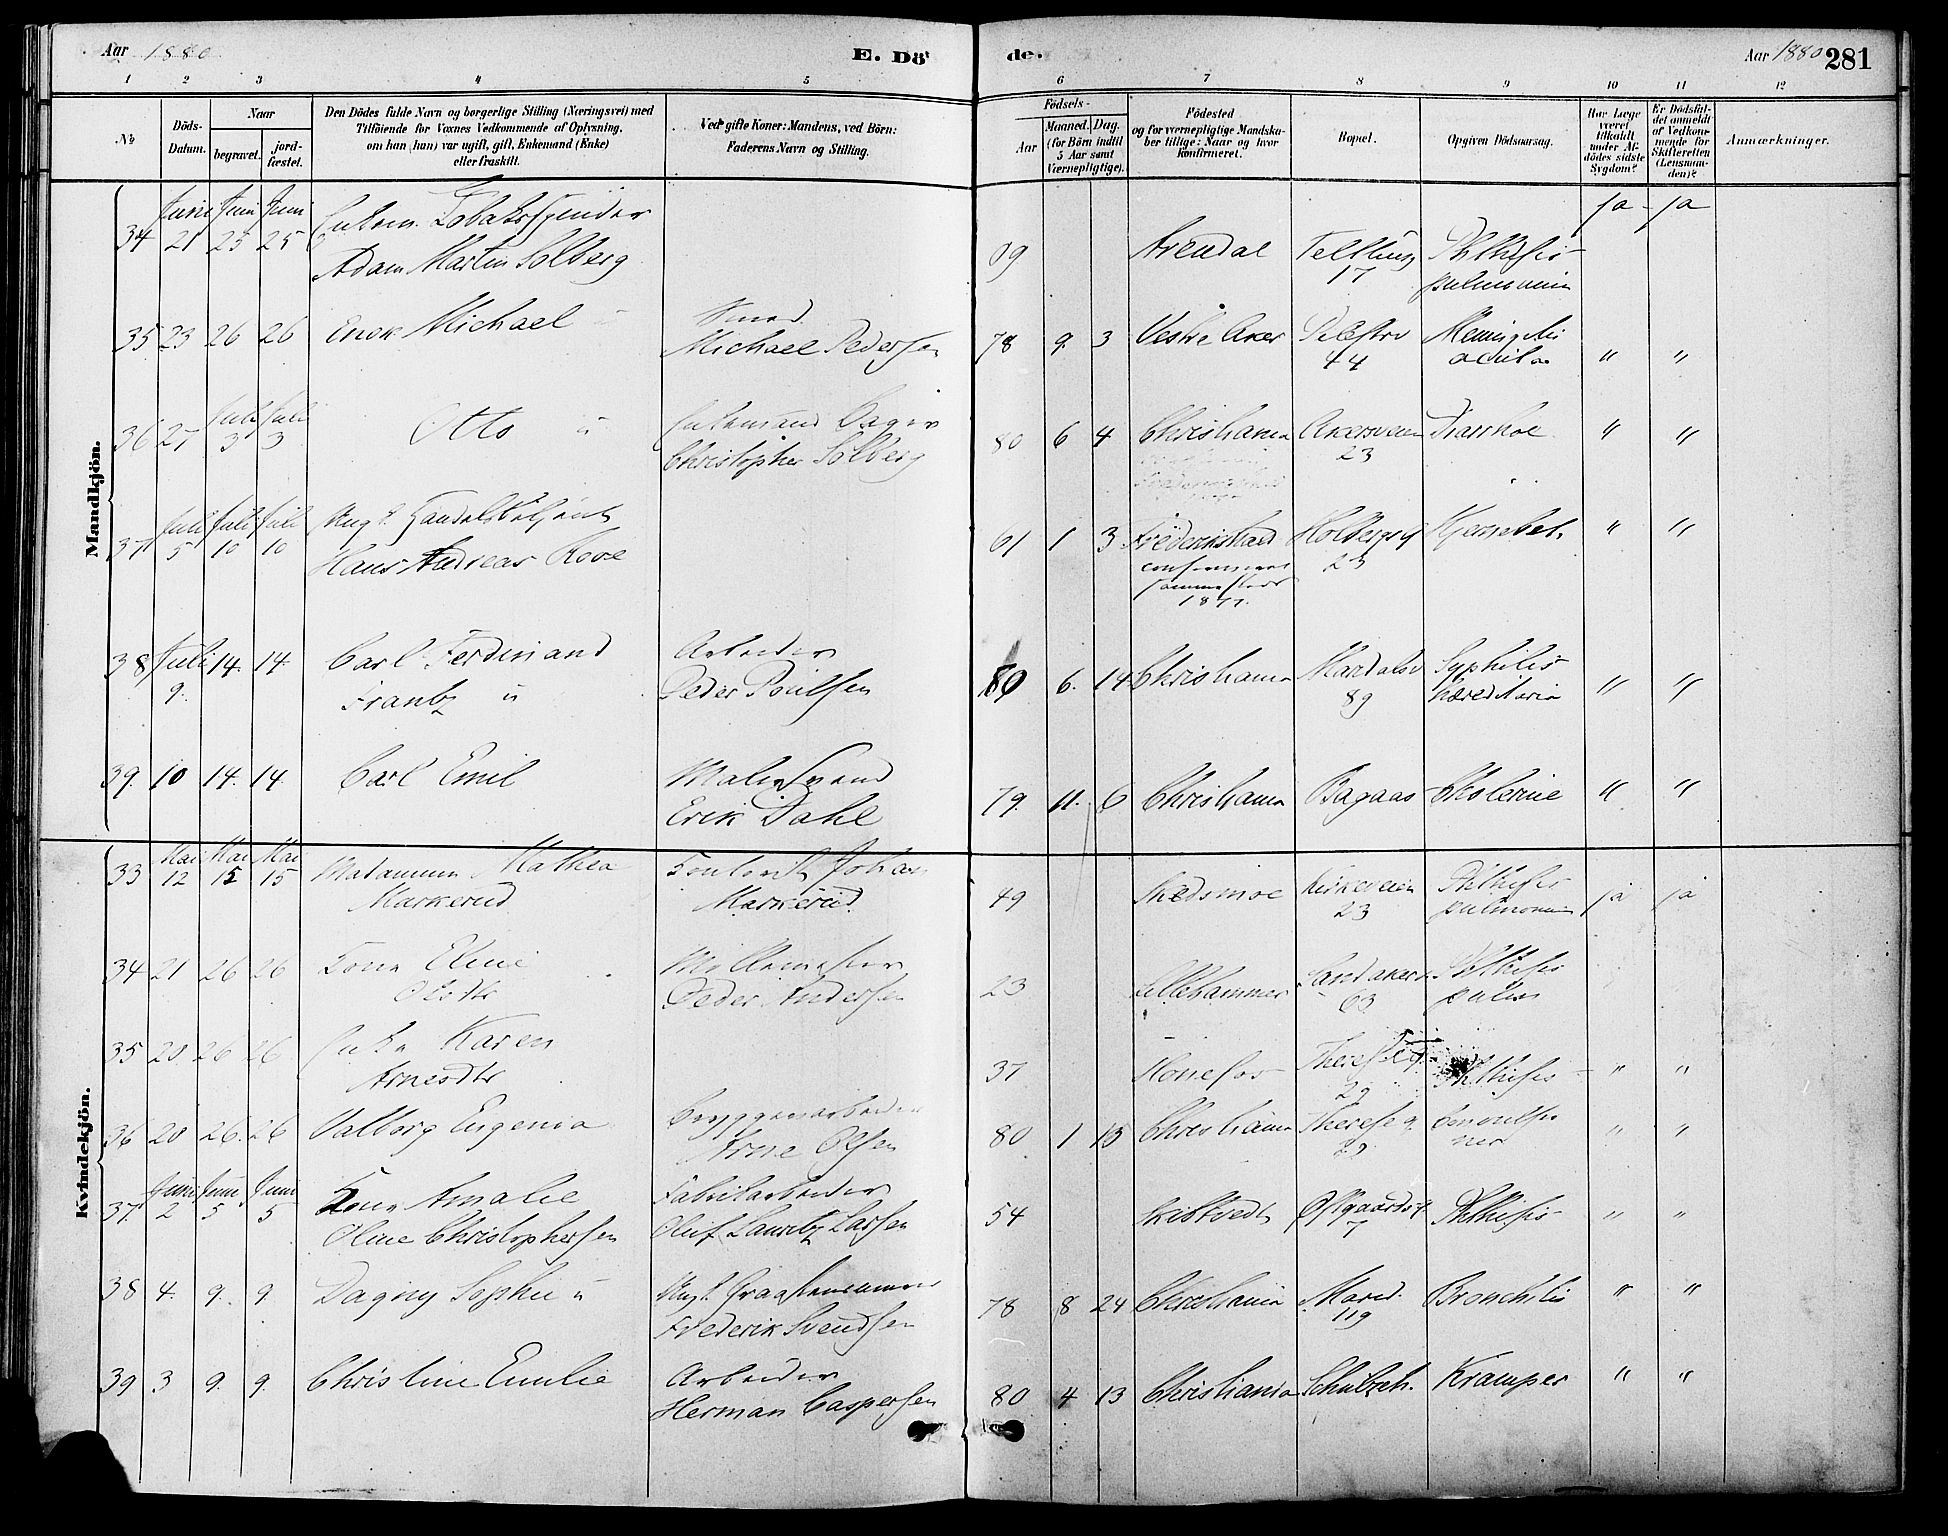 Aar 1880 E. Döde. Aar 1880 281
1 2 3 4 5 6 7 8 9 10 11 12
No Döds-Datum. Naar begravet. jordfæstet. Den Dödes fulde Navn og borgerlige Stilling (Næringsvei) med Tilföiende for Voxnes Vedkommende af Oplysning, om han (hun) var ugift, gift, Enkemand (Enke) eller fraskilt. Ved gifte Koner: Mandens, ved Börn: Faderens Navn og Stilling. Födsels- Aar Maaned. Dag. (for Börn indtil 5 Aar samt Værnepligtige). Födested og for værnepligtige Mandskaber tillige: Naar og hvor konfirmeret. Bopæl. Opgiven Dödsaarsag. Har Læge været tilkaldt under Afdödes sidste Sygdom? Er Dödsfaldet anmeldt af Vedkommende for Skifteretten (Lensmanden)? Anmærkninger.
Mandkjön.
34 Juni 21 Juni 25 Juni 25 Adam Martin Solberg 09 Arendal 17 Phthisis pulmonum ja ja
35 23 26 26 Erick Michael Smed Michael Pedersen 78 9 3 Vestre Aker Pilestr 44 Meningitis acuta " "
36 27 Juli 3 Juli 3 Otto u Christopher Solberg 80 6 4 Christiania Akersveien 23 Diarrhoe " "
37 Juli 5 Juli 10 Juli 10 Ungk. Handelsbetjent Hans Andreas 61 1 3 Frederikstad confirmeret sammesteds 1877. Holbergsg 23 " "
38 Juli 9. 14. 14. Carl Ferdinand Frantz u Arbeider Peder Poulsen 80 6. 14 Christiania Maridalsv 89 Syphilis hæreditaria " "
39. 10 14. 14. Carl Emil Malersvend Erik Dahl 79. 11. 6 Christiania Bagaas Cholerine " "
Kvindekjön.
33 Mai 12 Mai 15 Mai 15 Mathea Markerud Johan Markerud. 49 Skedsmoe Kirkeveien 23 Phthisis pulmonum ja ja
34 21 26 26 Kone Eline Olsdtr Møllemester Peder Andersen 23 Lillehammer Sandakerv. 63 Phthisis pulm
35 20 26 26 Enke Karen Arnesdtr 37 Hønefos Theresesg. 29 Phthisis " "
36 20 26. 26 Valborg Eugenia Bryggeriarbeider Arne Olsen 80 1 13 Christiania Therese g. " "
37. Juni 2 Juni 5 Juni 5 Kone Amalie Oline Christophersen Fabrikarbeider Oluf Lauritz Larsen 54 Skibtvedt 7 Phthisis " "
38 4. 9. 9 Dagny Sophie u Frederik Svendsen 78 8 24 Christiania Marid. 119 Bronchitis " "
39 3 9. 9. Christine Emilie Arbeider Herman Caspersen 80 4 13 Christiania Schultzeh. Kramper " "